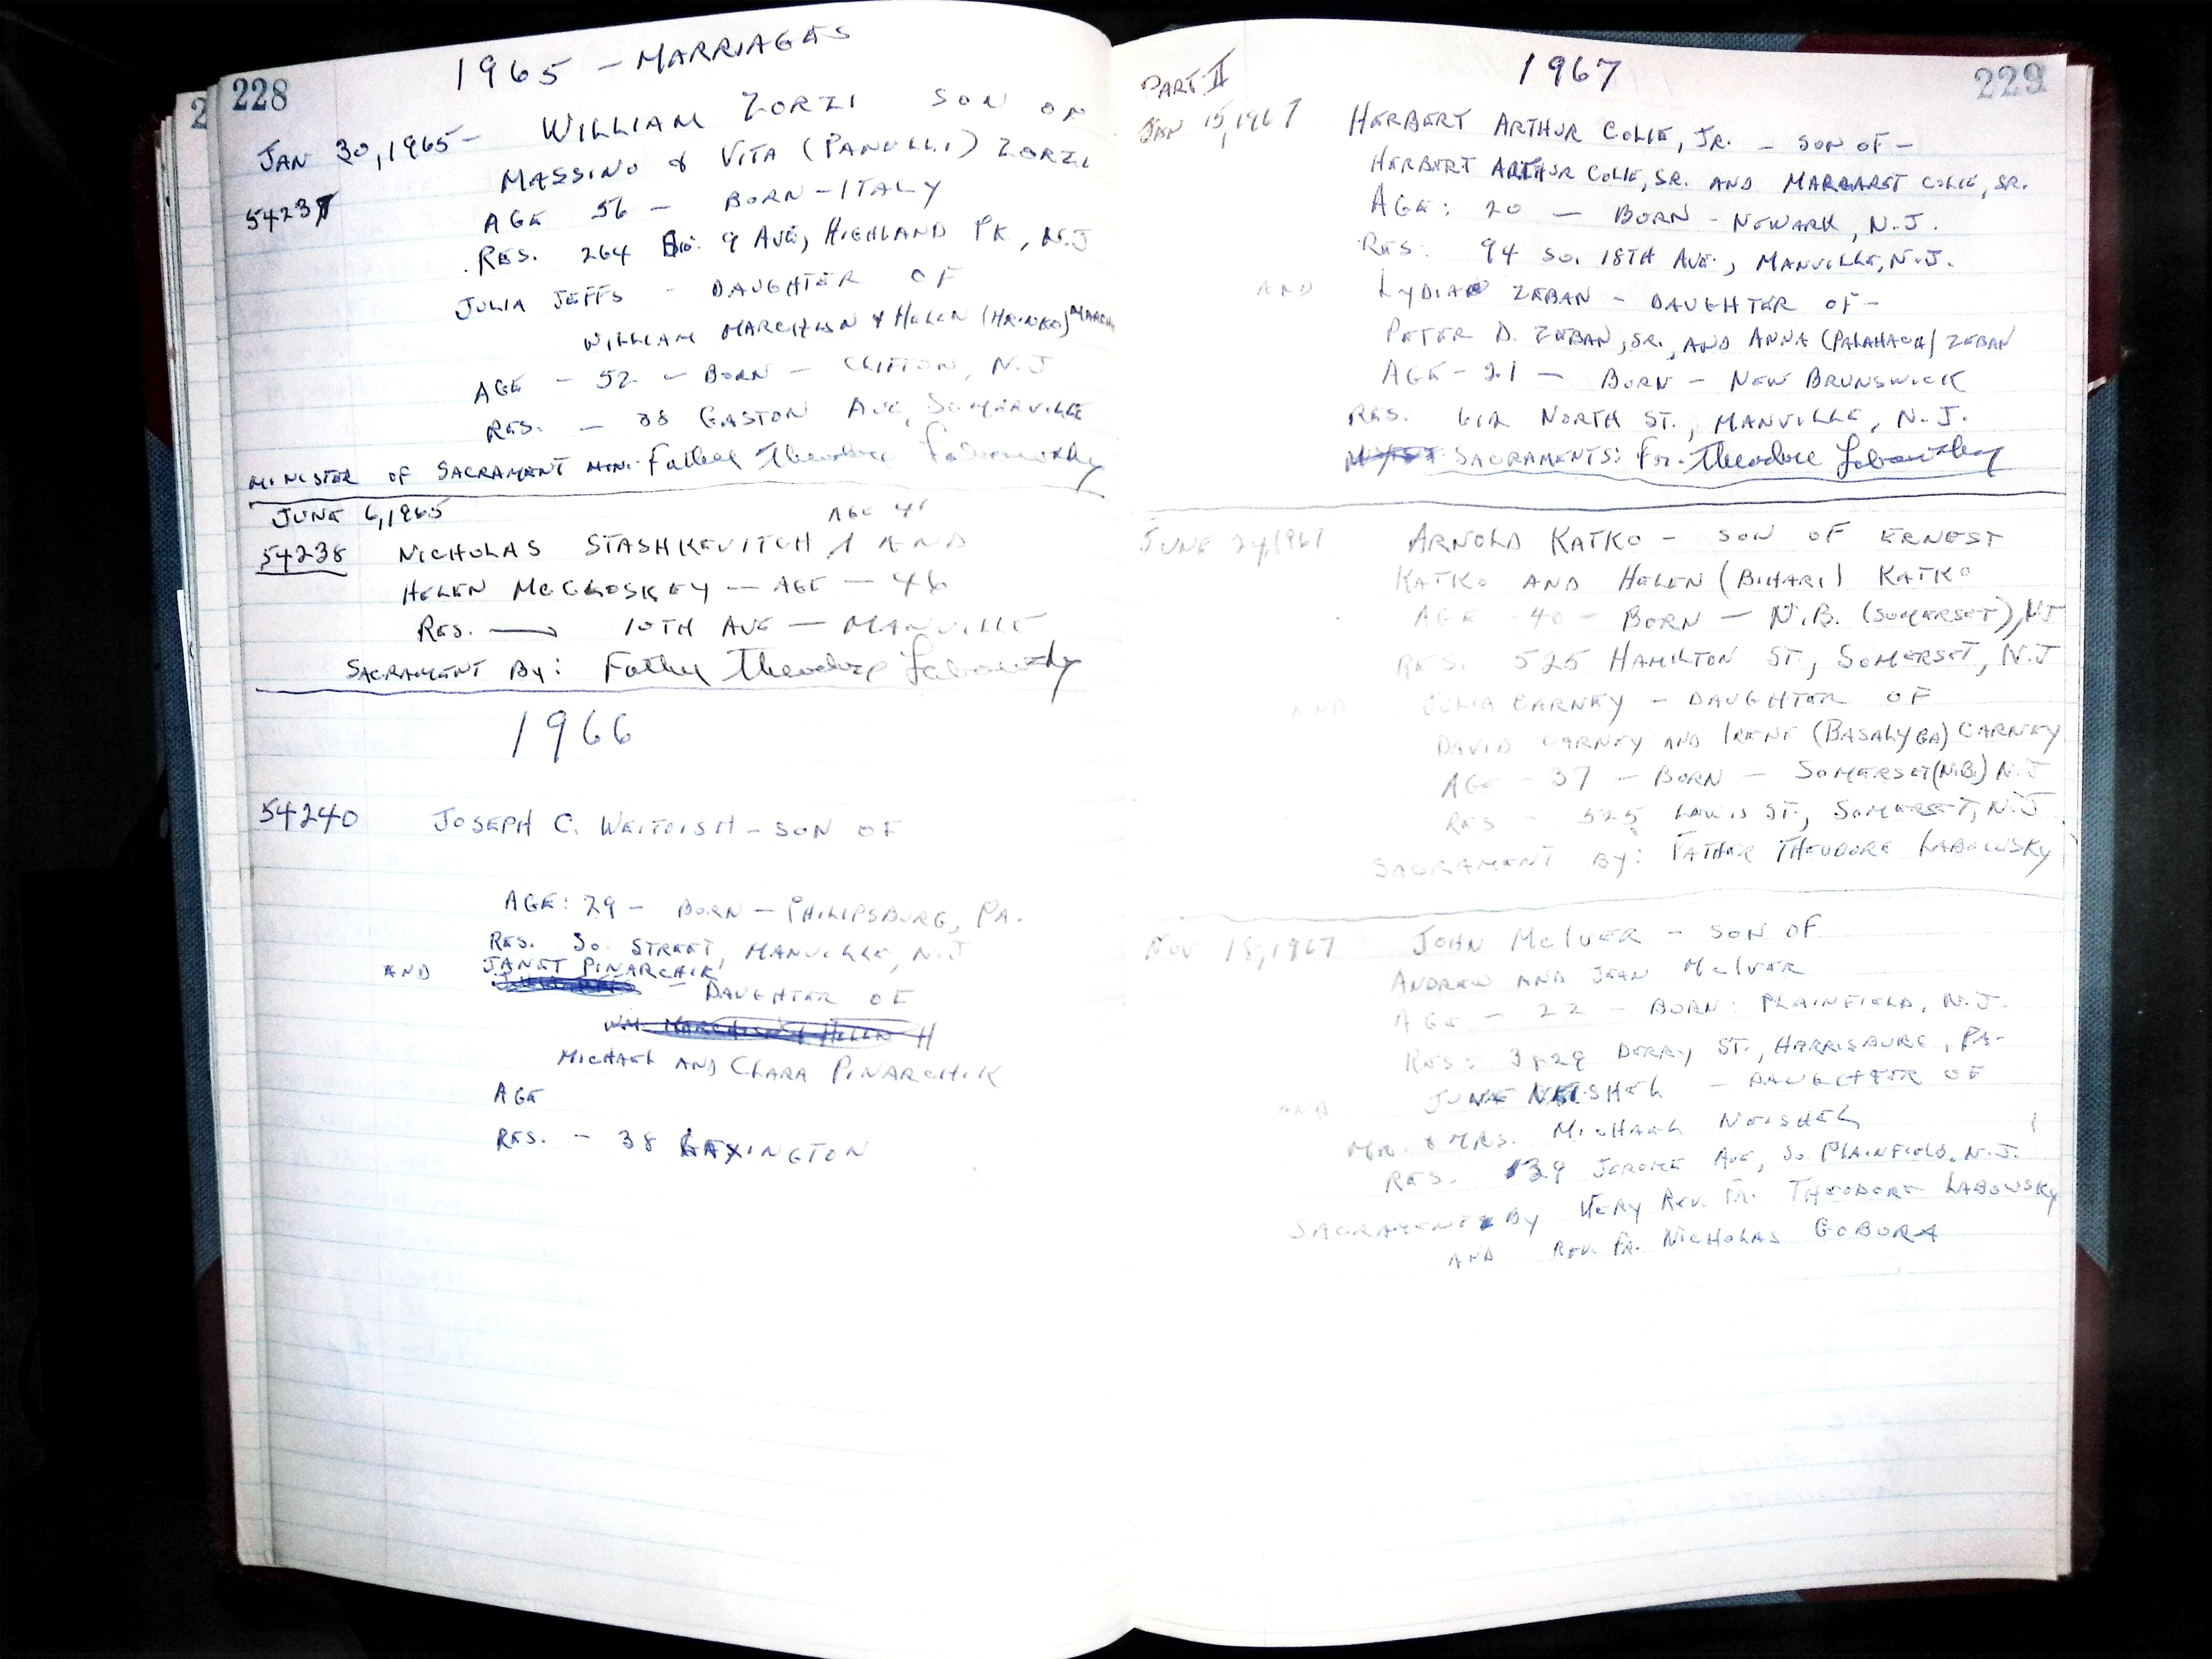 228
1965 - MARRIAGES
JAN 30, 1965 - WILLIAM ZORZI SON OF
MASSINO & VITA (PANULLI) ZORZI
54237
AGE 56 - BORN - ITALY
RES. 264 So. 9 AVE, HIGHLAND PK, N.J
JULIA JEFFS - DAUGHTER OF
WILLIAM MARCHISN & HELEN (HRINKO)
AGE - 52 - BORN - CLIFTON, N.J
RES. - 38 GASTON AVE, SOMERVILLE
MINISTER OF SACRAMENT MIN: Father Theodore Labowsky
JUNE 6, 1965
AGE 41
54238 NICHOLAS STASHKEVITCH / AND
HELEN MCCLOSKEY - AGE - 46
RES. 10TH AVE - MANVILLE
SACRAMENT BY: Father Theodore Labowsky
1966
54240 JOSEPH C. WEITOISH - SON OF
AGE: 29 - BORN - PHILIPSBURG, PA.
RES. So STREET, MANVILLE, N.J
AND JANET PINARCHIK
- DAUGHTER OF
MICHAEL AND CLARA PINARCHIK
AGE
RES. - 38 LEXINGTON
PART II
1967
229
JAN 15, 1967 HERBERT ARTHUR COLIE, JR. - SON OF -
HERBERT ARTHUR COLIE, SR. AND MARGARET COLIE, SR.
AGE: 20 - BORN - NEWARK, N.J.
RES: 94 SO. 18TH AVE., MANVILLE, N.J.
AND LYDIA ZEBAN - DAUGHTER OF -
PETER D. ZEBAN, SR., AND ANNA (PALAHACH) ZEBAN
AGE - 21 - BORN - NEW BRUNSWICK
RES. 612 NORTH ST., MANVILLE, N.J.
SACRAMENTS: Fr. Theodore Labowsky
JUNE 24, 1967 ARNOLD KATKO - SON OF ERNEST
KATKO AND HELEN (BIHARI) KATKO
AGE - 40 - BORN - N.B. (SOMERSET), NJ
RES. 525 HAMILTON ST., SOMERSET, N.J
AND JULIA CARNEY - DAUGHTER OF
DAVID CARNEY AND IRENE (BASALYGA) CARNEY
AGE - 37 - BORN - SOMERSET (N.B.) N.J
RES - 525 LEWIS ST., SOMERSET, N.J
SACRAMENT BY: FATHER THEODORE LABOWSKY
NOV 18, 1967 JOHN MCIVER - SON OF
ANDREW AND JEAN MCIVER
AGE - 22 - BORN: PLAINFIELD, N.J.
RES: 3829 DERRY ST., HARRISBURG, PA-
AND JUNE NEISHEL - DAUGHTER OF
MR. & MRS. MICHAEL NEISHEL
RES. 139 JEROME AVE, SO. PLAINFIELD, N.J.
SACRAMENT BY VERY REV. FR. THEODORE LABOWSKY
AND REV. FR. NICHOLAS GOBORA